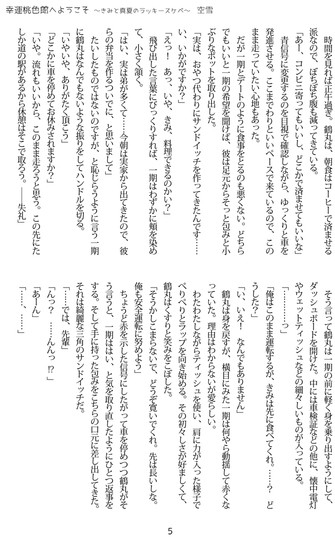 幸運桃色館へようこそ ～きみと真夏のラッキースケベ～ 空雪
時間を見れば正午過ぎ。鶴丸は、朝食はコーヒーで済ませる
派なので、ぼちぼち腹も減ってきている。
「あー、コンビニ寄ってもいいし、どこかで済ませてもいいな」
青信号に変更するのを目視で確認しながら、ゆっくりと車を
発進させる。ここまでわりといいペースで来ているので、この
まま走っていたい心地もあった。
だが一期とデートのように食事をとるのも悪くない。どちら
でもいいと一期の希望を聞けば、彼は足元からそっと包みと小
ぶりのポットを取り出した。
「実は、おやつ代わりにサンドイッチを作ってきたんですが…
い、いかがですか?」
「えっ! あっ、いや、きみ、料理できるのかい?」
飛び出した言葉にびっくりすれば、一期はわずかに頬を染め
て、小さく頷く。
「はい、実は弟が多くて……今朝は実家から出てきたので、彼
らの弁当を作るついでに、と思いまして」
たいしたものではないのですが、と恥じらうように言う一期
に鶴丸はなんでもないような振りをしてハンドルを切る。
「いやいや、ありがたく頂こう」
「どこかに車を停めてお休みされますか?」
「いや。流れもいいから、このまま走ろうと思う。この先にた
しか道の駅があるから休憩はそこで取ろう。――失礼」
そう言って鶴丸は一期の前に軽く身を乗り出すようにして、
ダッシュボードを開けた。中には車検証などの他に、懐中電灯
やウェットティッシュなどの細々しいものが入っている。
「………っ」
「俺はこのまま運転するが、きみは先に食べてくれ。……? ど
うした?」
「い、いえ! なんでもありません」
鶴丸は身を戻すが、横目にみた一期は何やら動揺して赤くな
っていた。理由はわからないが愛らしい。
わたわたしながらティッシュを使い、肩に力が入った様子で
ぺりぺりとラップを向き始める。その初々しさが好ましくて、
鶴丸はくすりと笑みをこぼした。
「そうかしこまらないで、どうぞ寛いでくれ。先は長いしな。
俺も安全運転に努めます」
ちょうど赤を示した信号にしたがって車を停めつつ鶴丸がそ
う言うと、一期ははい、と気を取り直したようにひとつ返事を
する。そして手に持った包みをこちらの口元に差し出してきた。
それは綺麗な三角のサンドイッチだ。
「……では、先輩」
「んっ? ……んんっ!?」
「あーん」
5